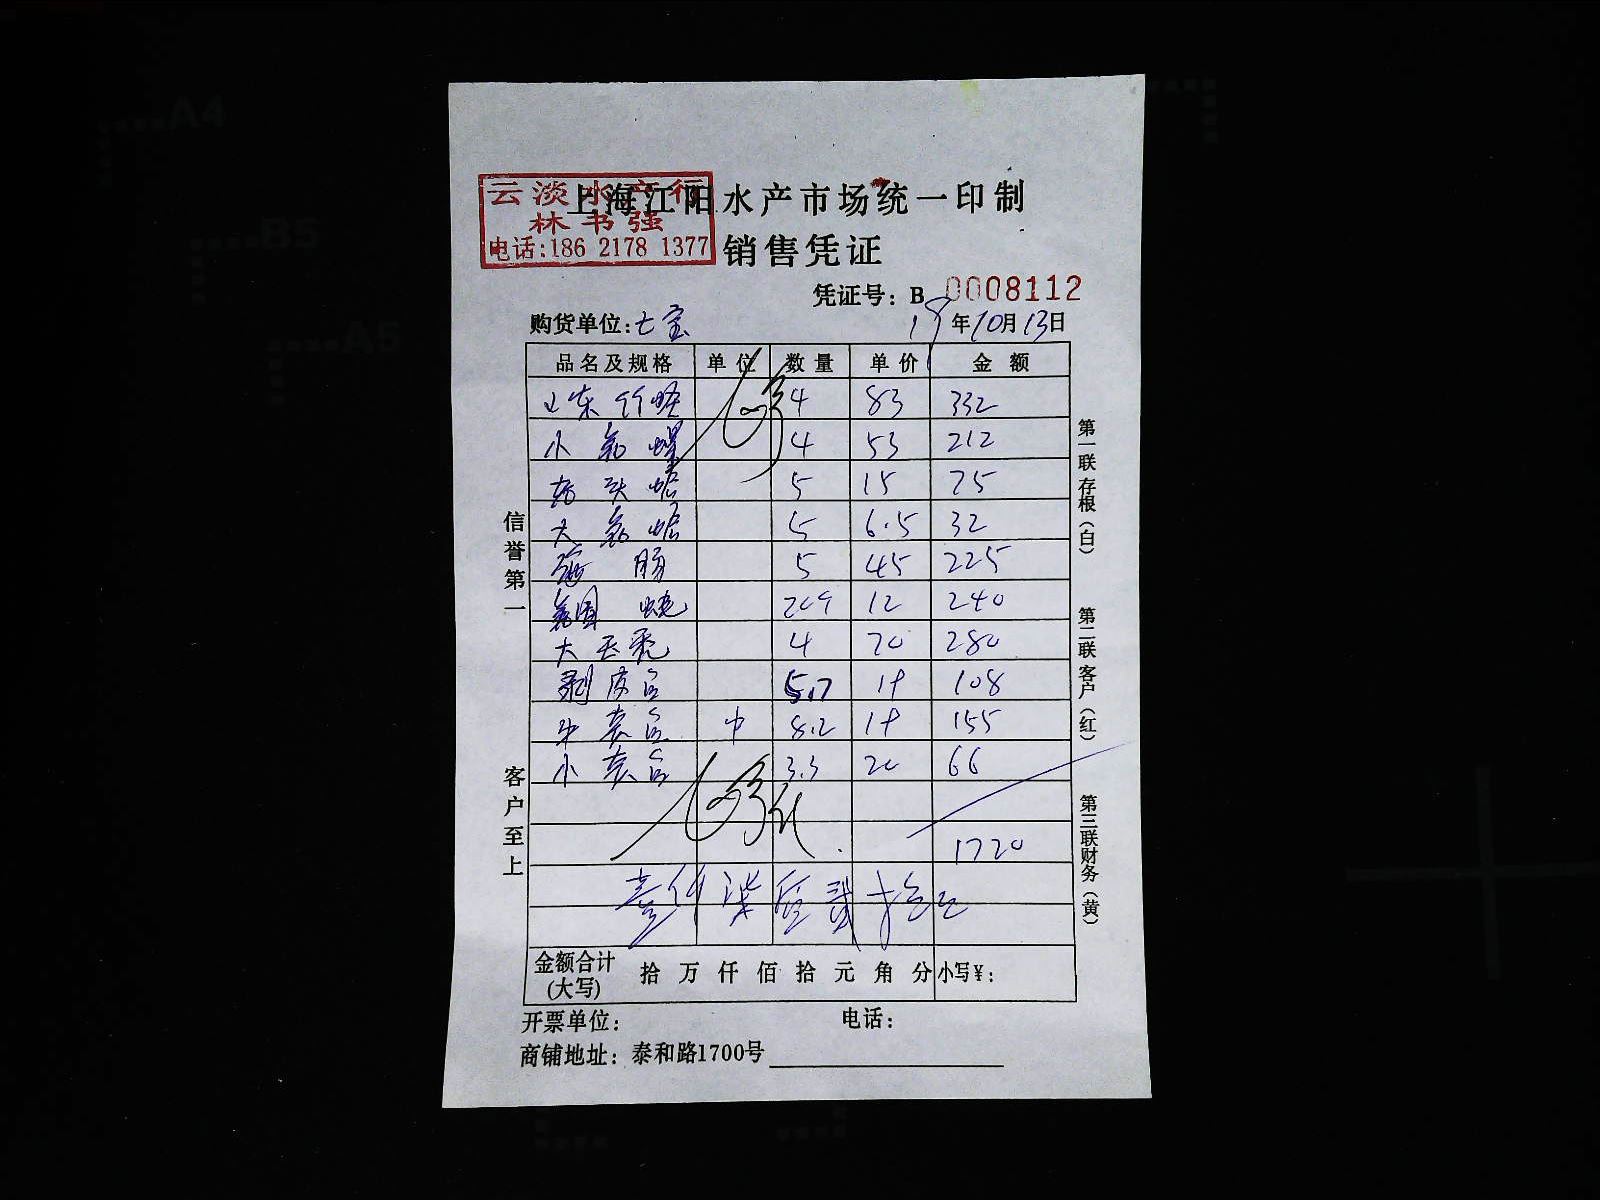 云淡水产行
林书强
电话:186 2178 1377
上海江阳水产市场统一印制
销售凭证
凭证号: B 0008112
购货单位: 七宝
19年10月13日
品名及规格 单位 数量 单价 金额
山东竹蛏 4 83 332
小 螺 4 53 212
头蛤 5 15 75
大 蛤 5 6.5 32
海肠 5 45 225
12 240
大 4 70 280
剥皮 5.17 108
中 8.2 155
小 3.3 66
1720
壹仟柒佰贰拾元
金额合计
(大写) 拾 万 仟 佰 拾 元 角 分 小写¥:
开票单位: 电话:
商铺地址: 泰和路1700号
信誉第一
客户至上
第一联存根(白)
第二联客户(红)
第三联财务(黄)